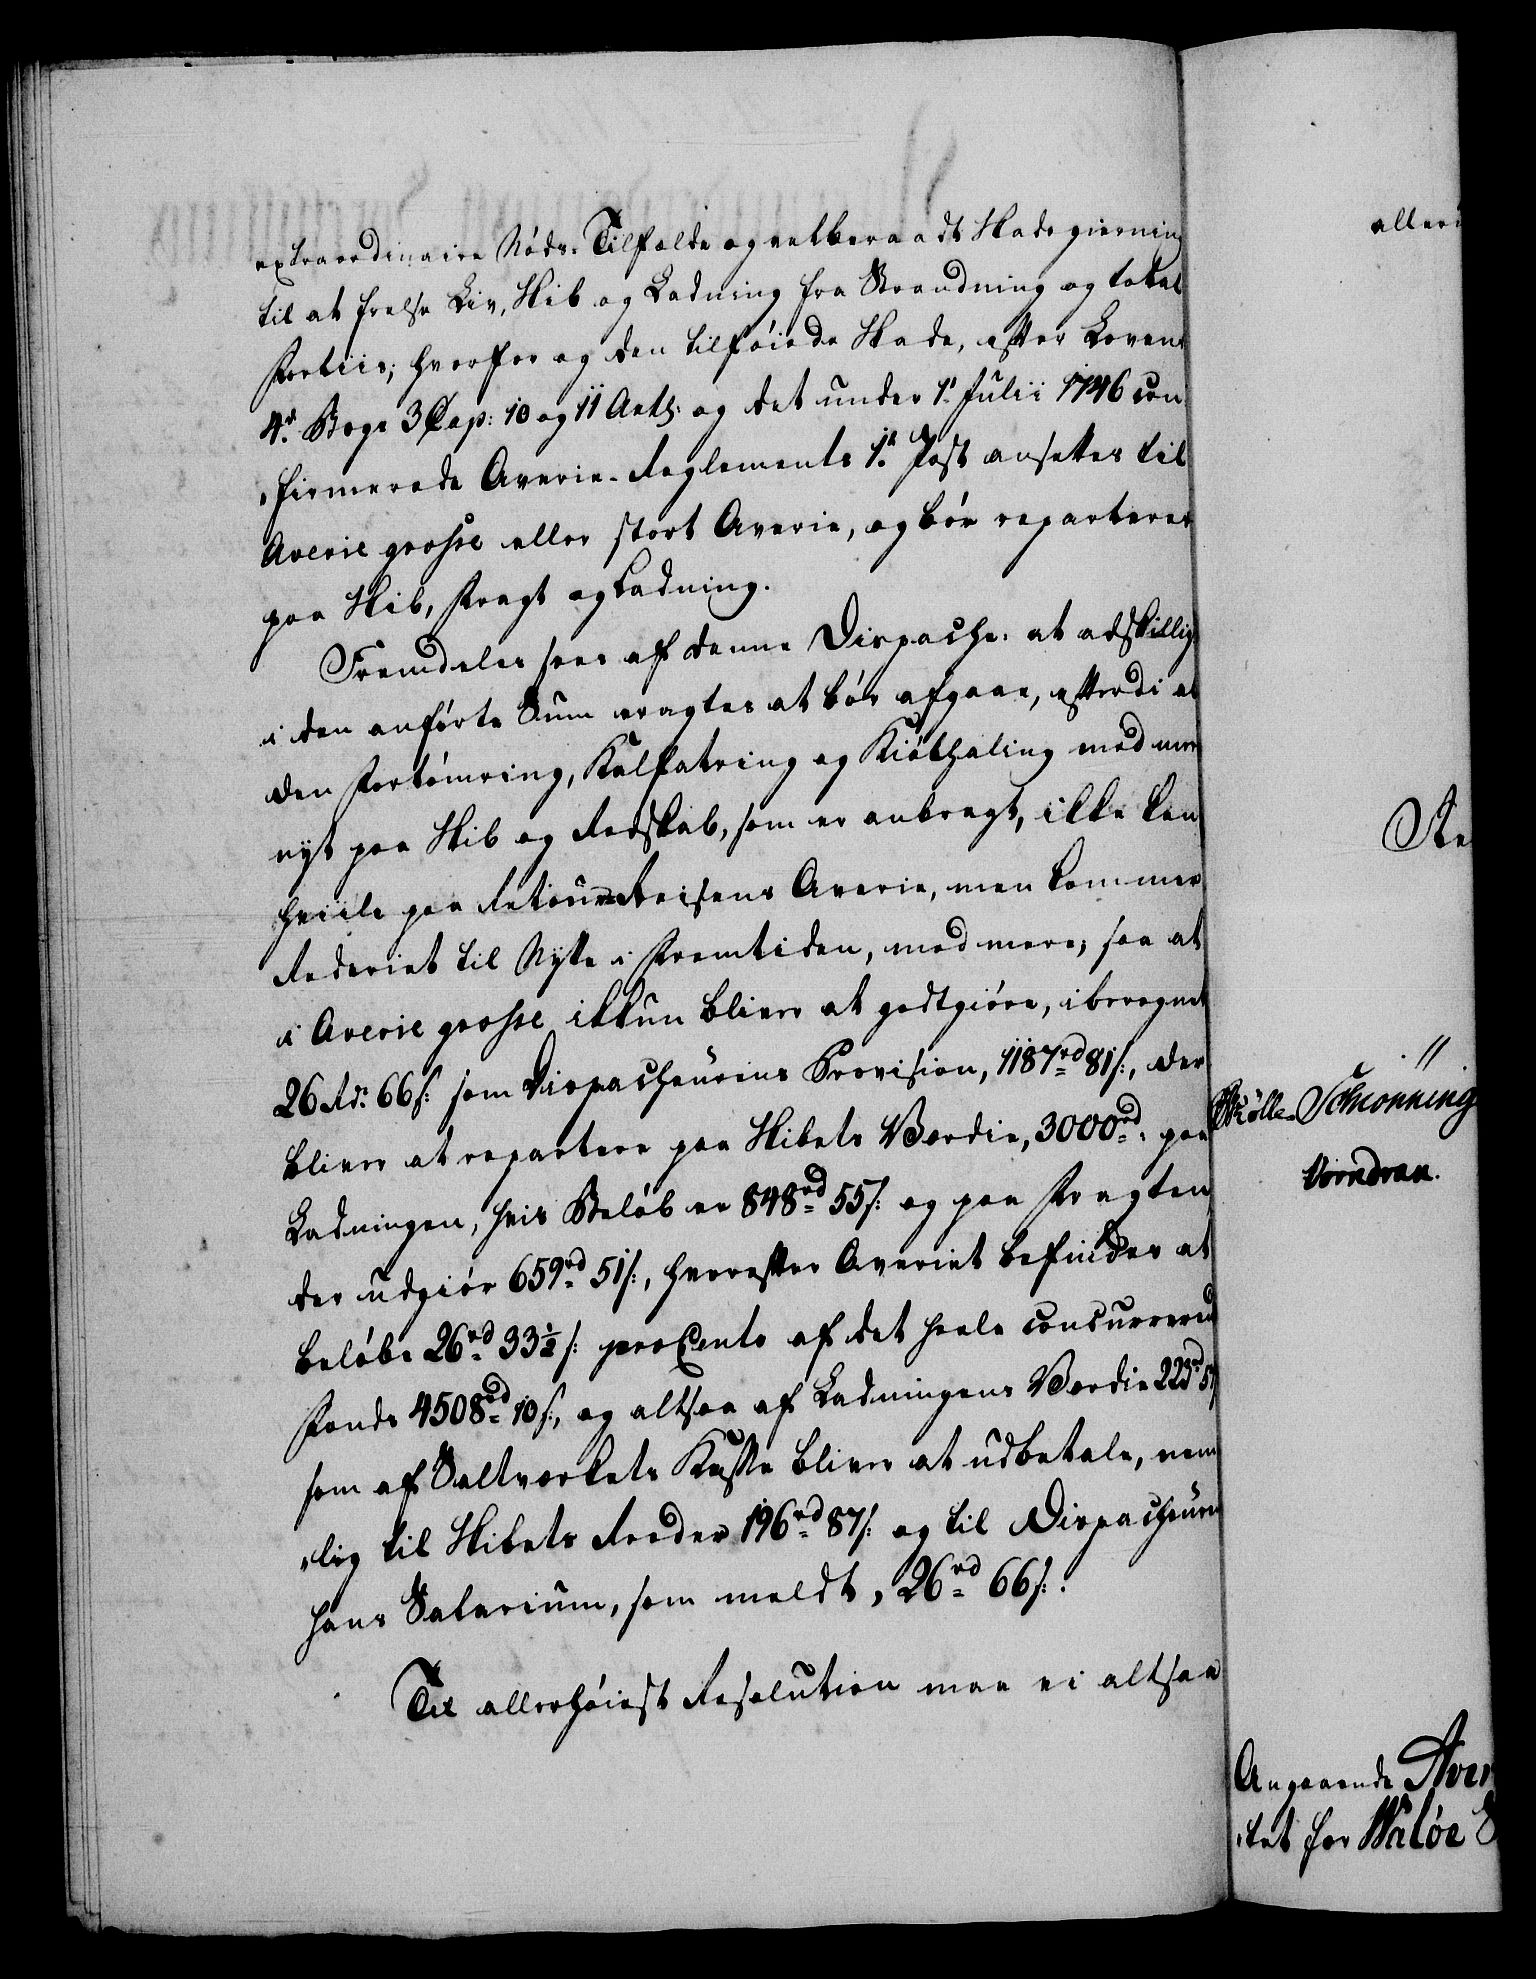 extraordinaire Nøds-Tilfælde og velberaadt Skade giærning
til at frelse Liv, Skib og Ladning fra Strandning og total
Forliis; hvorfor og den tilføiede Skade, efter Lovens
4de Bogs 3 Cap: 10 og 11 Artl: og det under 1te Julii 1746 con
„firmerede Averie-Reglements 1te Post ansettes til
Averie grosse eller stort Averie, og bør reparteres
paa Skib, Fragt og Ladning.
Fremdeles sees af denne Dispache: at adskilligt
i den anførte Sum eragtes at bør afgaae, efterdi al
den Fortømring, Kalfatring og Kiølhaling med mere
nyt paa Skib og Redskab, som er anbragt, ikke kan
hviile paa Retour-Reisens Averie, men kommer
Rederiet til Nytte i Fremtiden, med mere; saa at
i Averie grosse ikkun bliver at godtgiøre, iberegnet
26 Rd: 66 s: som Dispacheurens Provision, 1187 rd 81 s:, der
bliver at repartere paa Skibets Værdie, 3000 rd: paa
Ladningen, hvis Beløb er 848 rd 55 s: og paa Fragten,
der udgiør 659 rd 51 s:, hvorefter Averiet befindes at
beløbe 26 rd 33½ s: pro Cento af det heele concurrerende
Fonds 4508 rd 10 s:, og altsaa af Ladningens Værdie 223 rd 57
som af Saltværkets Kasse bliver at udbetale, nem
„lig til Skibets Reeder 196 rd 87 s: og til Dispacheuren
hans Salarium, som meldt, 26 rd 66 s:.
Til allerhøiest Resolution maa vi altsaa
aller
Møller Schionning
Vorndran.
Angaaende Aver
„tet for Waløe S